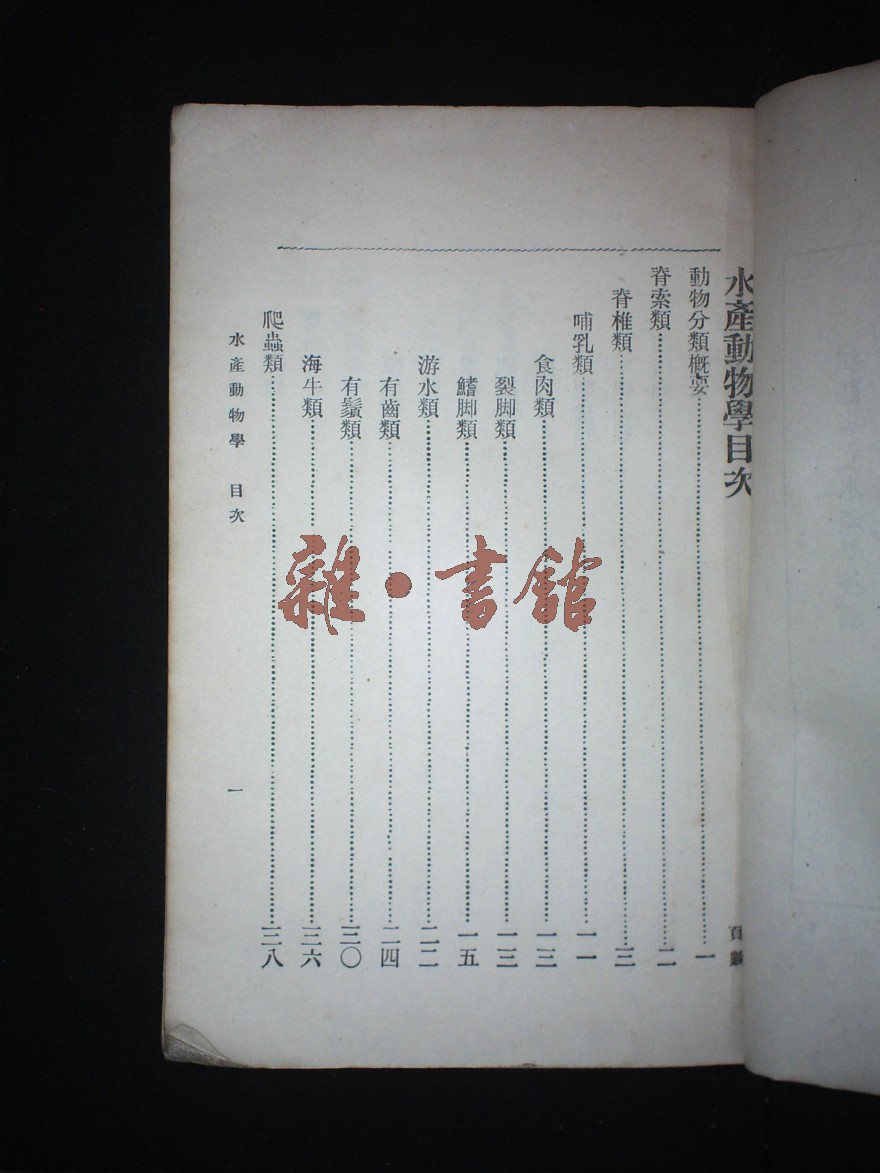 水產動物學目次
頁數
動物分類概要⋯⋯一
脊索類⋯⋯二
脊椎類⋯⋯三
哺乳類⋯⋯一一
食肉類⋯⋯一三
裂脚類⋯⋯一三
鰭脚類⋯⋯一五
游水類⋯⋯二二
有齒類⋯⋯二四
有鬚類⋯⋯三〇
海牛類⋯⋯三六
爬蟲類⋯⋯三八
水產動物學 目次
一
雜·書館